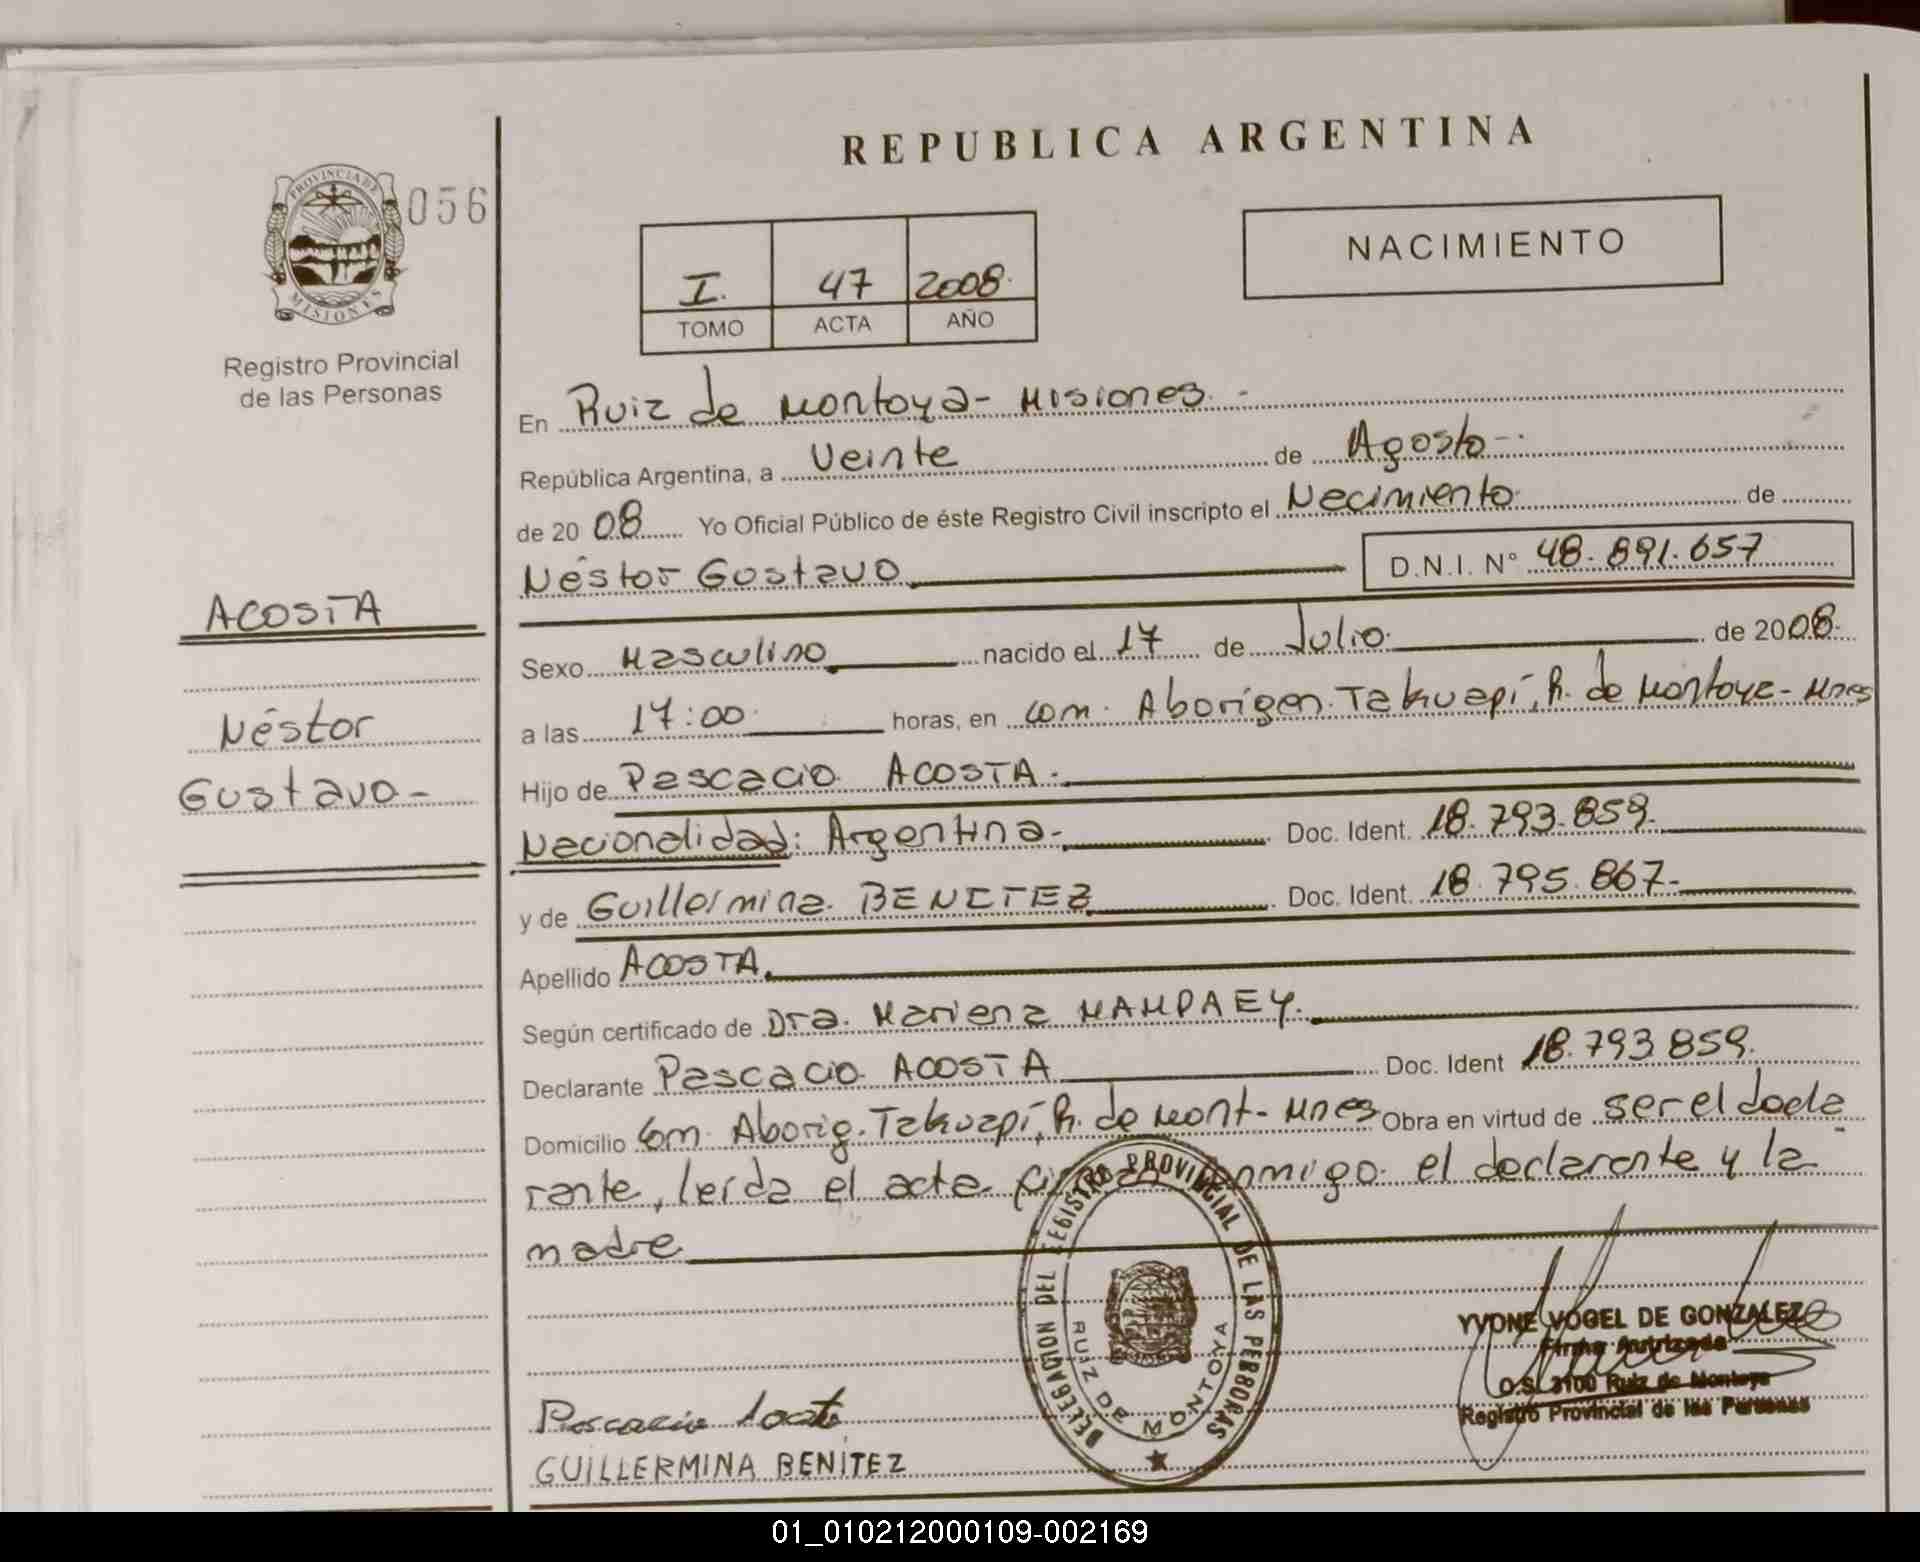 REPUBLICA ARGENTINA
PROVINCIA DE
MISIONES
056
Registro Provincial
de las Personas
I. 47 2008.
TOMO ACTA AÑO
NACIMIENTO
En Ruiz de Montoya - Misiones. -
República Argentina, a Veinte de Agosto -.
de 20 08 Yo Oficial Público de éste Registro Civil inscripto el Necimiento de
Néstor Gustavo D.N.I. N° 48.891.657
ACOSTA
Néstor
Gustavo -
Sexo Masculino nacido el 17 de Julio de 2008.
a las 17:00 horas, en Com. Aborigen Takuapí, R. de Montoya - Mnes
Hijo de Pascacio ACOSTA.
Nacionalidad: Argentina. Doc. Ident. 18.793.859.
y de Guillermina BENITEZ Doc. Ident. 18.795.867.-
Apellido ACOSTA.
Según certificado de Dra. Mariena MAMPAEY.
Declarante Pascacio ACOSTA Doc. Ident 18.793.859.
Domicilio Com. Aborig. Takuapí, R. de Mont - Mnes Obra en virtud de ser el decla
rante, leída el acta conmigo el declarante y la
madre
DELEGACION DEL REGISTRO PROVINCIAL DE LAS PERSONAS
RUIZ DE MONTOYA
YVONE VOGEL DE GONZALEZ
Firma Autrizada
O.S. 3100 Ruiz de Montoya
Registro Provincial de las Personas
Pascacio
GUILLERMINA BENÍTEZ
01_010212000109-002169